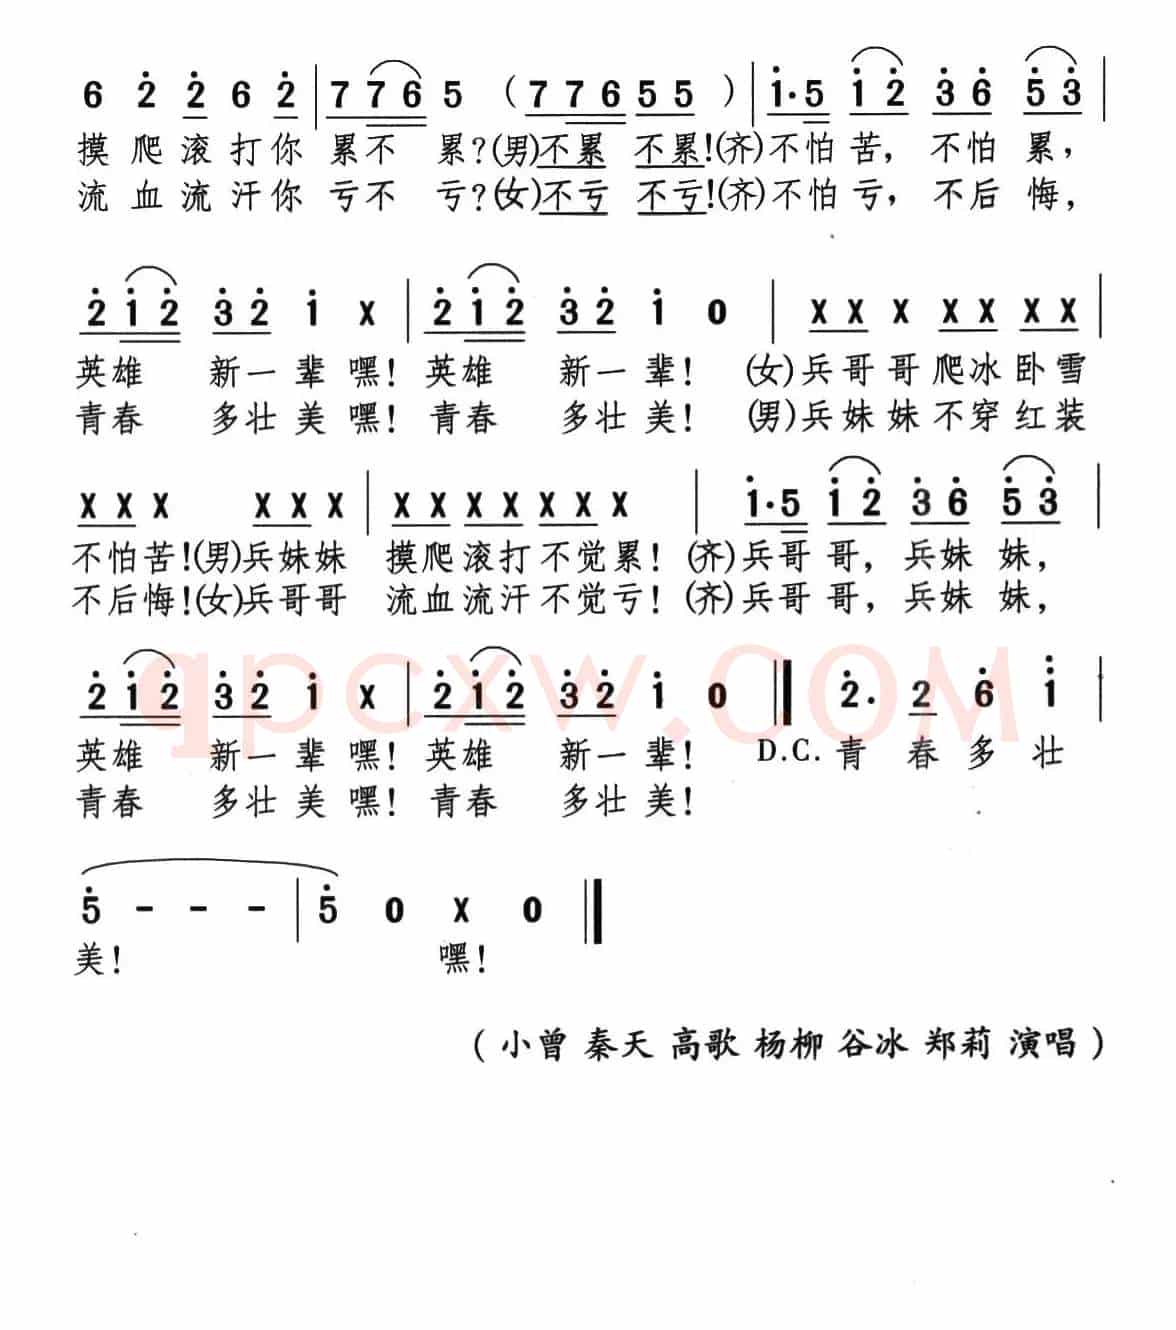 6 2 2 6 2 | 7 7 6 5 ( 7 7 6 5 5 ) | 1·5 1 2 3 6 5 3 |
摸爬滚打你 累不 累?(男)不累 不累!(齐)不怕苦, 不怕累,
流血流汗你 亏不 亏?(女)不亏 不亏!(齐)不怕亏, 不后悔,
2 1 2 3 2 1 X | 2 1 2 3 2 1 0 | X X X X X X X |
英雄 新一辈嘿! 英雄 新一辈! (女)兵哥哥爬冰卧雪
青春 多壮美嘿! 青春 多壮美! (男)兵妹妹不穿红装
X X X X X X | X X X X X X X | 1·5 1 2 3 6 5 3 |
不怕苦!(男)兵妹妹 摸爬滚打不觉累! (齐)兵哥哥, 兵妹妹,
不后悔!(女)兵哥哥 流血流汗不觉亏! (齐)兵哥哥, 兵妹妹,
2 1 2 3 2 1 X | 2 1 2 3 2 1 0 ‖ 2· 2 6 1 |
英雄 新一辈嘿! 英雄 新一辈! D.C. 青 春多壮
青春 多壮美嘿! 青春 多壮美!
qpcxw.COM
5 - - - | 5 0 X 0 ‖
美! 嘿!
(小曾 秦天 高歌 杨柳 谷冰 郑莉 演唱)